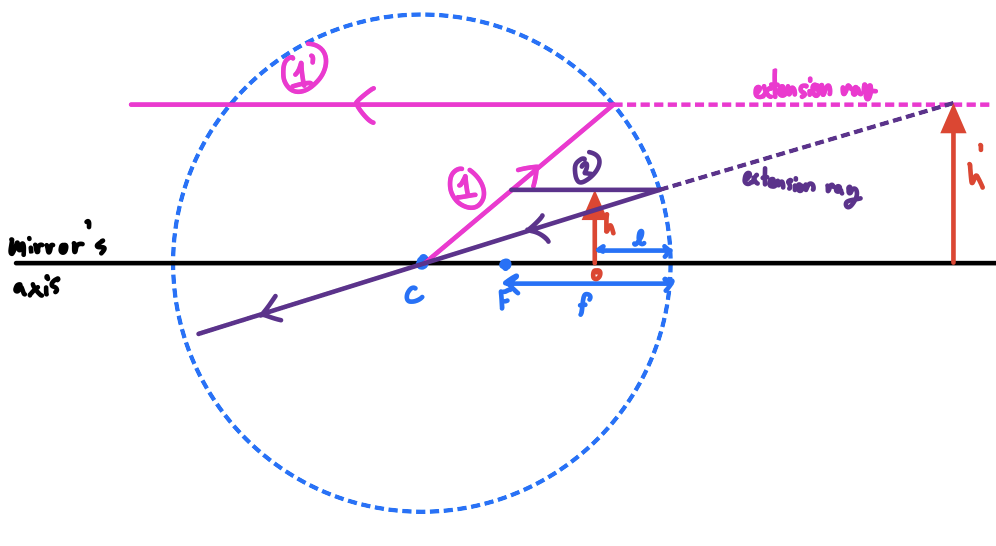 1'
extension ray
extension ray
2
1
h'
h
l
mirror's
axis
C
F
f
o